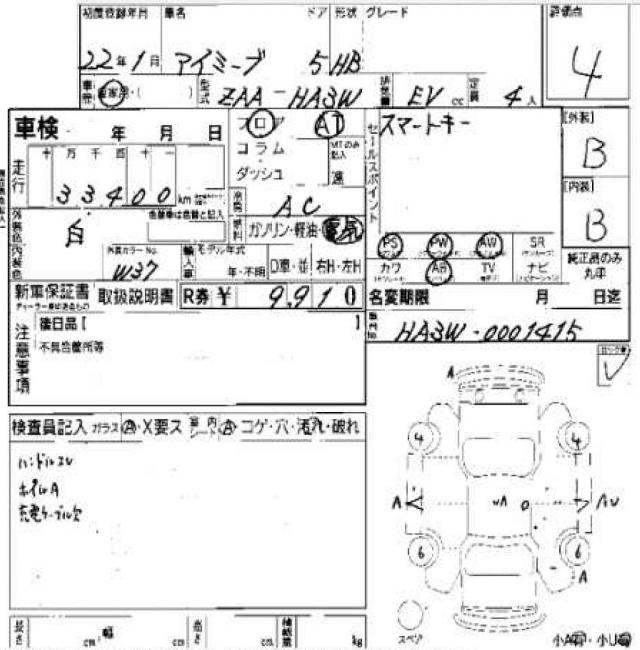 初度登録年月 車名 ドア 形状 グレード 評価点
22年1月 アイミーブ 5 HB 4
車歴 自家用・( ) 型式 ZAA-HA3W 排気量 EV cc 定員 4人
車検 年 月 日 フロア AT セールスポイント スマートキー [外装] B
コラム・ダッシュ MTのみ記入 速
走行 十万千百十一 33400 km
冷房 AC [内装] B
外装色 白 色替車は色替と記入 燃料 ガソリン・軽油・電気
PS PW AW SR
カワ AB TV ナビ 純正品のみ丸印
内装色 外装カラーNo. W37 輸入車 モデル年式 年・不明 D車・並 右H・左H
新車保証書 取扱説明書 R券 ¥ 9,910 名変期限 月 日迄
HA3W-0001415
注意事項 後日品[ ]
不具合箇所等
検査員記入 ガラス A・X要ス 室内シート A・コゲ・穴・汚れ・破れ
ハンドルスレ
ホイルA
充電ケーブル欠
A
4 4
A A AU
6 6
A
スペア
長さ cm 幅 cm 高さ cm 積載量 kg